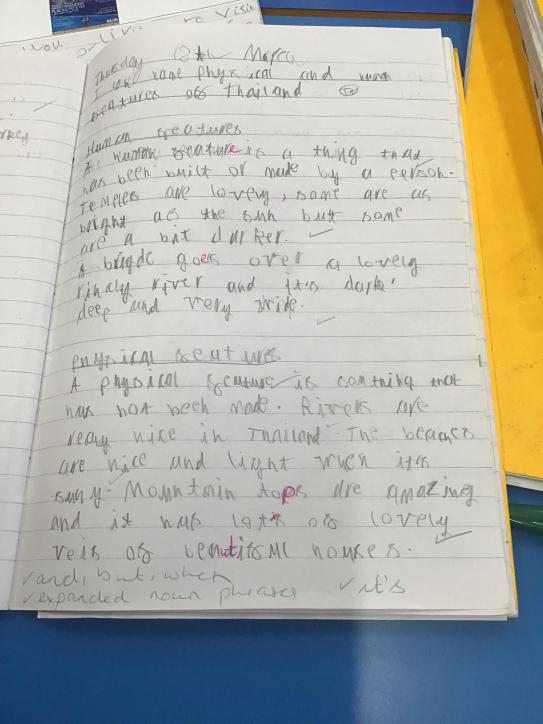 to visit
Thursday 8th March
I can name physical and human
features of Thailand
Human features
A human feature is a thing that
has been built or made by a person.
Temples are lovely, some are as
bright as the sun but some
are a bit darker.
A brigde goes over a lovely
river and it's dark,
deep and very wide.
Physical features
A physical feature is somthing that
has not been made. Rivers are
reay nice in Thailand. The beaches
are nice and light when it's
suny. Mountain tops are amazing
and it has lots of lovely
veis of beautifull houses.
and, but, when
expanded noun phrases it's